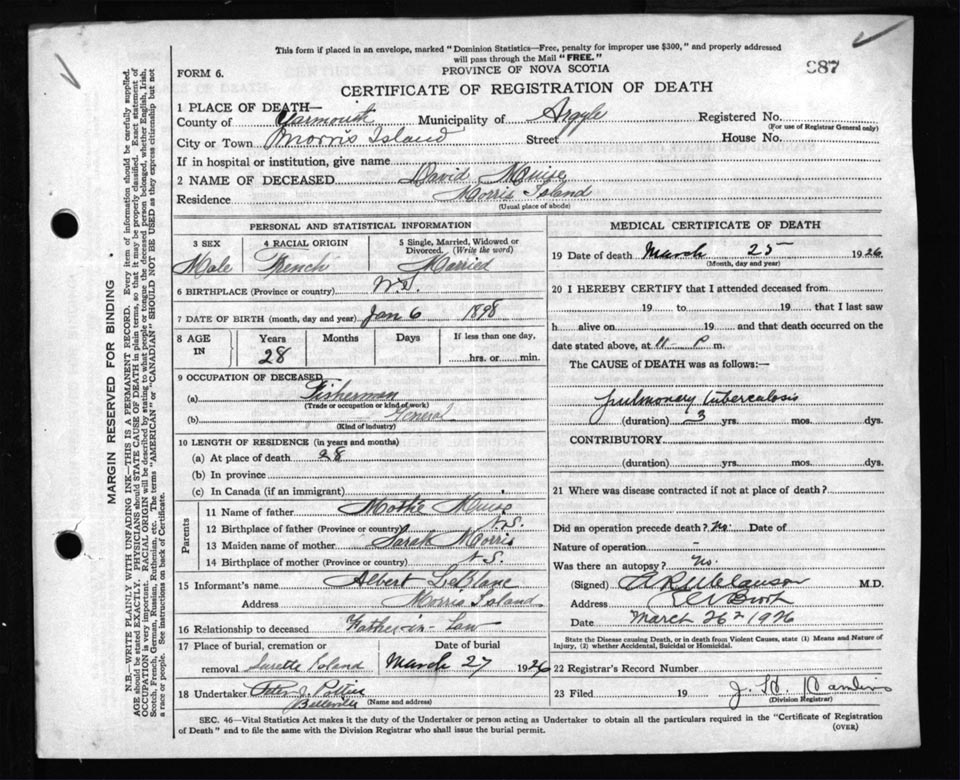 This form if placed in an envelope, marked "Dominion Statistics—Free, penalty for improper use $300," and properly addressed
will pass through the Mail "FREE."
FORM 6.
PROVINCE OF NOVA SCOTIA
887
CERTIFICATE OF REGISTRATION OF DEATH
1 PLACE OF DEATH—
County of Yarmouth Municipality of Argyle Registered No.
(For use of Registrar General only)
City or Town Morris Island Street House No.
If in hospital or institution, give name
2 NAME OF DECEASED David Muise
Residence Morris Island
(Usual place of abode)
PERSONAL AND STATISTICAL INFORMATION
3 SEX 4 RACIAL ORIGIN 5 Single, Married, Widowed or
Divorced. (Write the word)
Male French Married
6 BIRTHPLACE (Province or country) N.S.
7 DATE OF BIRTH (month, day and year) Jan 6 1898
8 AGE IN Years Months Days If less than one day,
28 hrs. or min.
9 OCCUPATION OF DECEASED
(a) Fisherman
(Trade or occupation or kind of work)
(b) General
(Kind of industry)
10 LENGTH OF RESIDENCE (in years and months)
(a) At place of death 28
(b) In province
(c) In Canada (if an immigrant)
Parents
11 Name of father Mothe Muise
12 Birthplace of father (Province or country) N.S.
13 Maiden name of mother Sarah Morris
14 Birthplace of mother (Province or country) N.S.
15 Informant's name Albert LeBlanc
Address Morris Island
16 Relationship to deceased Father-in-Law
17 Place of burial, cremation or Date of burial
removal Surette Island March 27 1926
18 Undertaker Peter J. Pottier
Belleville (Name and address)
MEDICAL CERTIFICATE OF DEATH
19 Date of death March 25 1926
(Month, day and year)
20 I HEREBY CERTIFY that I attended deceased from
19 to 19 that I last saw
h alive on 19 and that death occurred on the
date stated above, at 11 P m.
The CAUSE of DEATH was as follows:—
pulmonary tuberculosis
(duration) 3 yrs. mos. dys.
CONTRIBUTORY
(duration) yrs. mos. dys.
21 Where was disease contracted if not at place of death?
Did an operation precede death? No. Date of
Nature of operation -
Was there an autopsy? No.
(Signed) M.D.
Address
Date March 26 1926
State the Disease causing Death, or in death from Violent Causes, state (1) Means and Nature of
Injury, (2) whether Accidental, Suicidal or Homicidal.
22 Registrar's Record Number
23 Filed 19 J. H.
(Division Registrar)
SEC. 46—Vital Statistics Act makes it the duty of the Undertaker or person acting as Undertaker to obtain all the particulars required in the "Certificate of Registration
of Death" and to file the same with the Division Registrar who shall issue the burial permit.
(OVER)
MARGIN RESERVED FOR BINDING
N.B.—WRITE PLAINLY WITH UNFADING INK—THIS IS A PERMANENT RECORD. Every item of information should be carefully supplied.
AGE should be stated EXACTLY. PHYSICIANS should STATE CAUSE OF DEATH in plain terms, so that it may be properly classified. Exact statement of
OCCUPATION is very important. RACIAL ORIGIN will be described by stating to what people or tongue the deceased person belonged, whether English, Irish,
Scotch, French, German, Russian, Ruthenian, etc. The terms "AMERICAN" or "CANADIAN" SHOULD NOT BE USED as they express citizenship but not
a race or people. See instructions on back of Certificate.